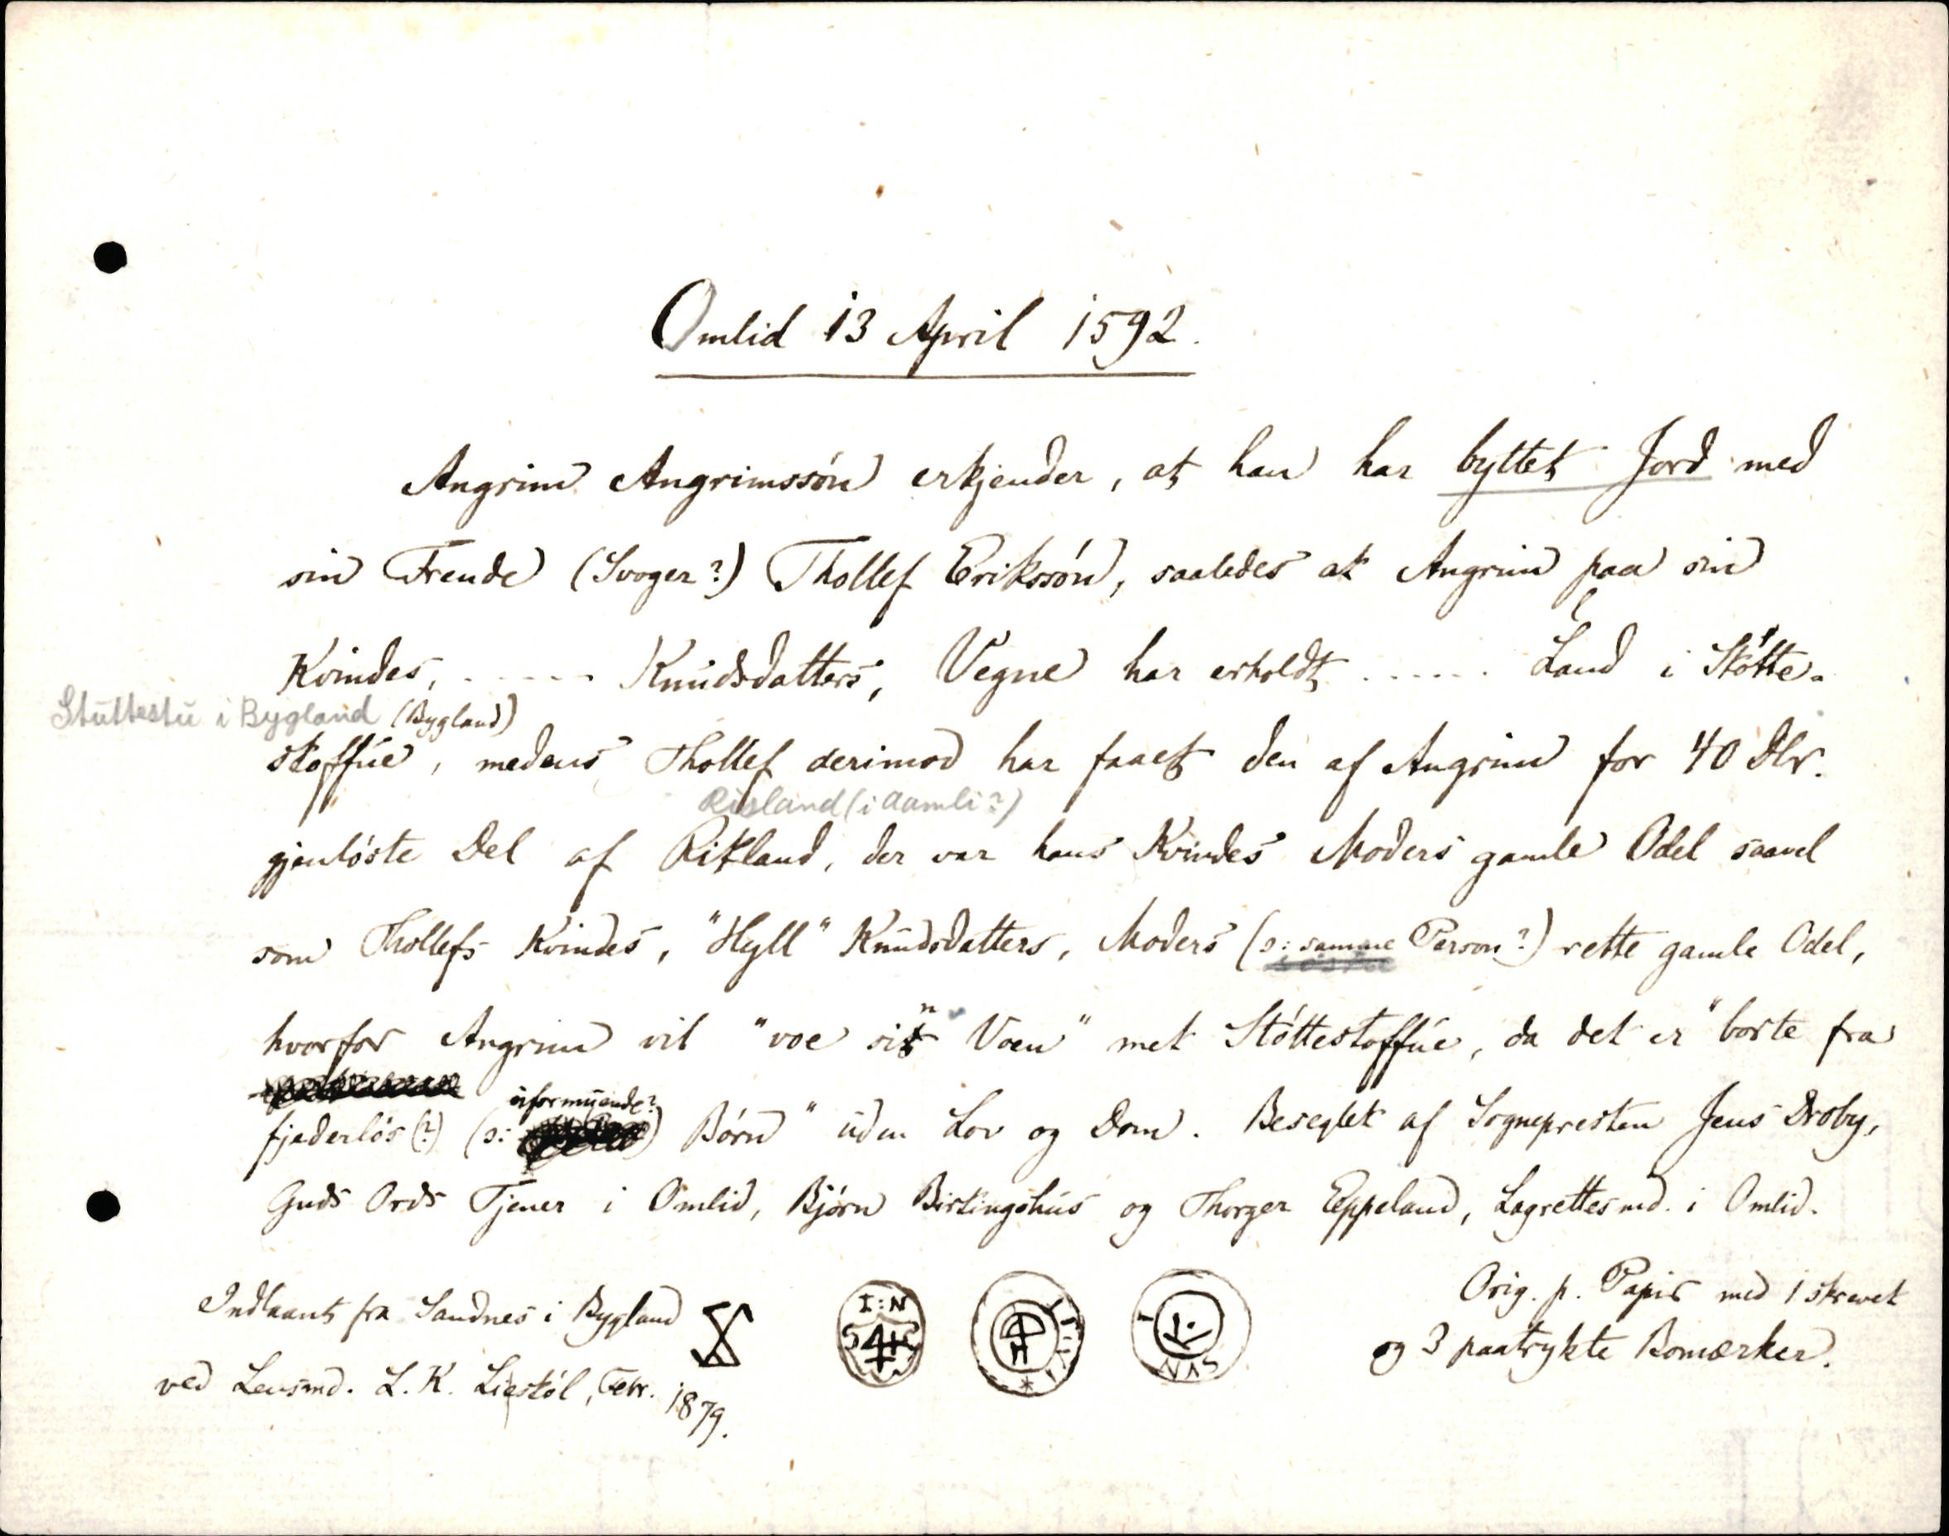 Omlid 13 April 1592.
Angrim Angrimssøn erkjender, at han har byttet Jord med
sin Frende (Svoger?) Thollef Erikssøn, saaledes at Angrim paa sin
Kvindes, ..... Knudsdatters, Vegne har erholdt ...... Land i Støtte-
Stuttestu i Bygland (Bygland)
stoffue, medens Thollef derimod har faaet den af Angrim for 40 Dlr.
Risland (i Aamli?)
gjenløste Del af Rikland, der var hans Kvindes Moders gamle Odel saavel
som Thollefs Kvindes, "Hyll" Knudsdatters, Moders (ɔ: samme Person?) rette gamle Odel,
hvorfor Angrim vil "voe sin Voen" met Støttestoffue, da det er "borte fra
uformuende?
fjederløs (?) (ɔ: ) Børn" uden Lov og Dom. Beseglet af Sognepresten Jens Droby,
Guds Ords Tjener i Omlid, Bjørn Birkingshus og Thorger Eppeland, Lagrettesmd. i Omlid.
Indlaant fra Sandnes i Bygland
ved Lensmd. L. K. Liestøl, Febr. 1879.
I:N
Orig. p. Papir med 1 skrevet
og 3 paatrykte Bomærker.